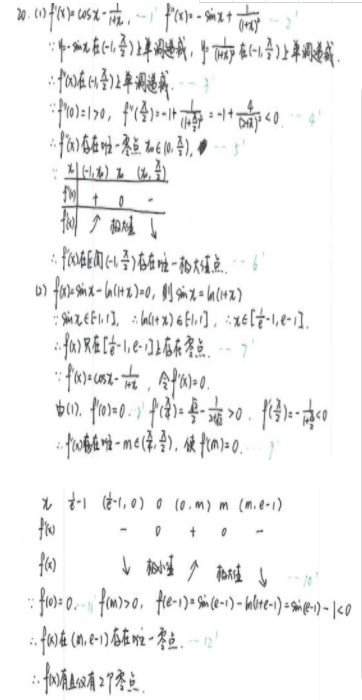 20. (1) f'(x)=cosx-1/(1+x), --1' f''(x)=-sinx+1/(1+x)² --2'
∵y=-sinx在(-1,π/2)上单调递减, y=1/(1+x)²在(-1,π/2)上单调递减,
∴f''(x)在(-1,π/2)上单调递减. --3'
∵f''(0)=1>0, f''(π/2)=-1+1/(1+π/2)²=-1+4/(2+π)²<0. --4'
∴f''(x)存在唯一零点x₀∈(0,π/2), --5'
∵
x (-1,x₀) x₀ (x₀,π/2)
f''(x) + 0 -
f'(x) ↗ 极大值 ↓
∴f'(x)在区间(-1,π/2)存在唯一极大值点. --6'
(2) f(x)=sinx-ln(1+x)=0, 则sinx=ln(1+x)
∵sinx∈[-1,1], ∴ln(1+x)∈[-1,1], ∴x∈[1/e-1,e-1].
∴f(x)只在[1/e-1,e-1]上存在零点. --7'
∵f'(x)=cosx-1/(1+x), 令f'(x)=0.
由(1), f'(0)=0. f'(π/4)=√2/2-1/(1+π/4)>0. f'(π/2)=-1/(1+π/2)<0
∴f'(x)存在唯一m∈(π/4,π/2), 使f'(m)=0. --9'
x 1/e-1 (1/e-1,0) 0 (0,m) m (m,e-1)
f'(x) - 0 + 0 -
f(x) ↓ 极小值 ↗ 极大值 ↓ --10'
∵f(0)=0, --11' f(m)>0, f(e-1)=sin(e-1)-ln(1+e-1)=sin(e-1)-1<0
∴f(x)在(m,e-1)存在唯一零点. --12'
∴f(x)有且仅有2个零点.